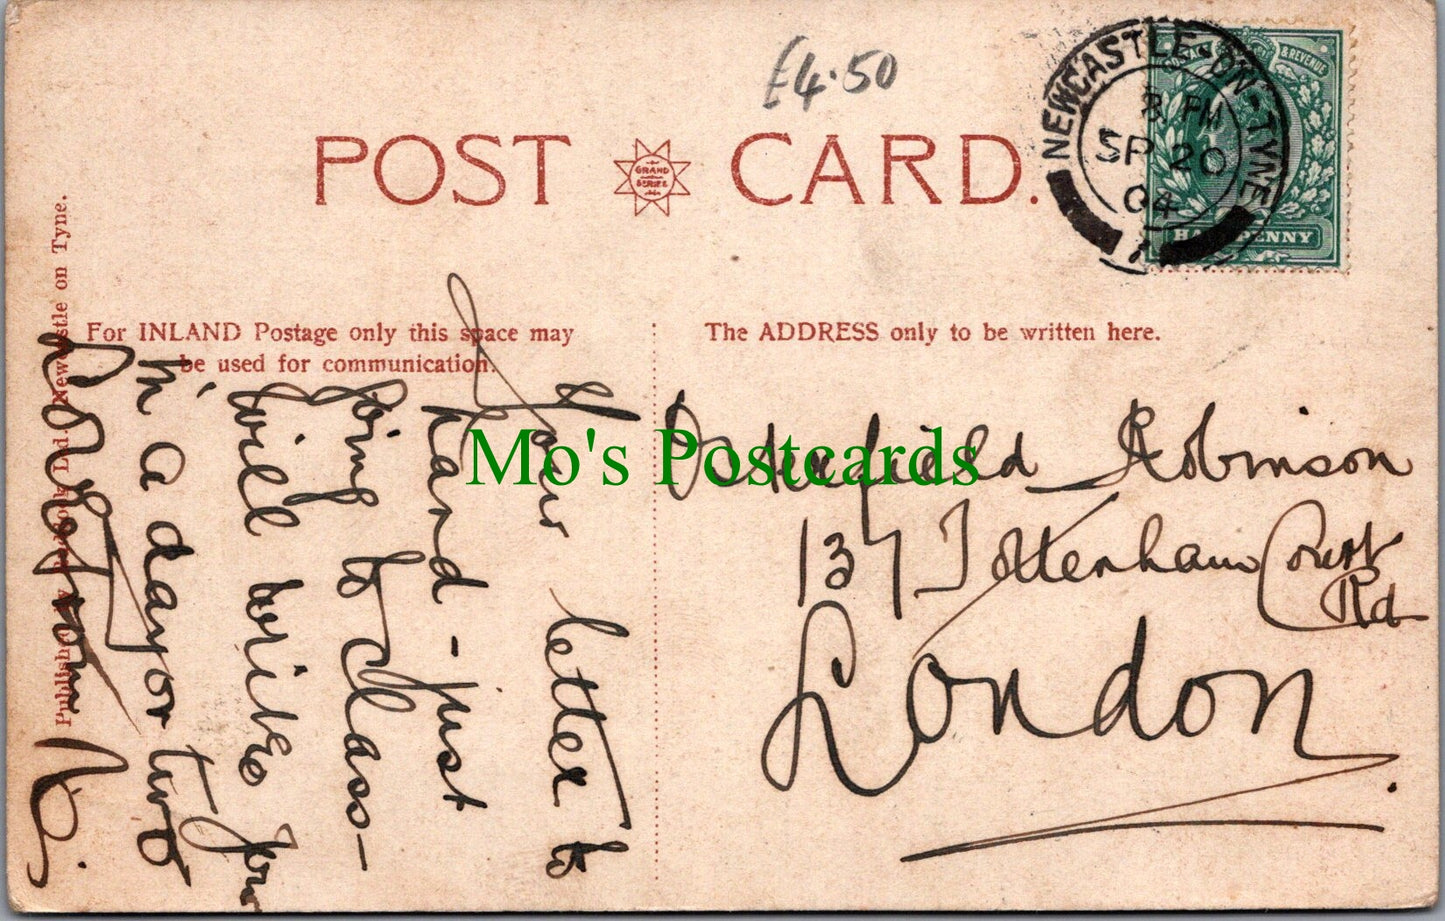 £4.50
POST CARD.
GRAND
SERIES
NEWCASTLE-ON-TYNE
3 PM
SP 20
04
& REVENUE
HALFPENNY
For INLAND Postage only this space may
be used for communication.
The ADDRESS only to be written here.
Mo's Postcards
Your letter to
hand - just
going to Class -
will write you
in a day or two
Robinson
137 Tottenham Court
Rd
London.
Ltd. Newcastle on Tyne.